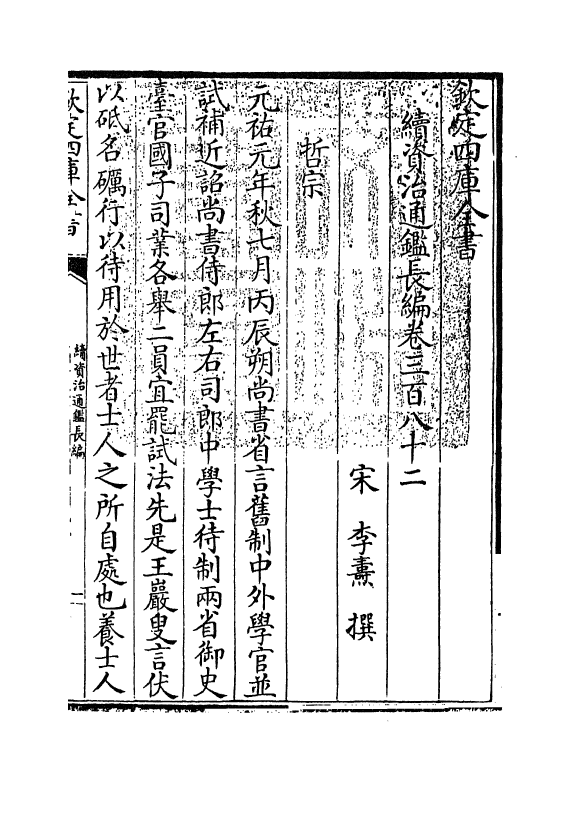 欽定四庫全書
續資治通鑑長編卷三百八十二
宋 李燾 撰
哲宗
元祐元年秋七月丙辰朔尚書省言舊制中外學官並
試補近詔尚書侍郎左右司郎中學士待制兩省御史
臺官國子司業各舉二員宜罷試法先是王巖叟言伏
以砥名礪行以待用於世者士人之所自處也養士人
欽定四庫全書
續資治通鑑長編